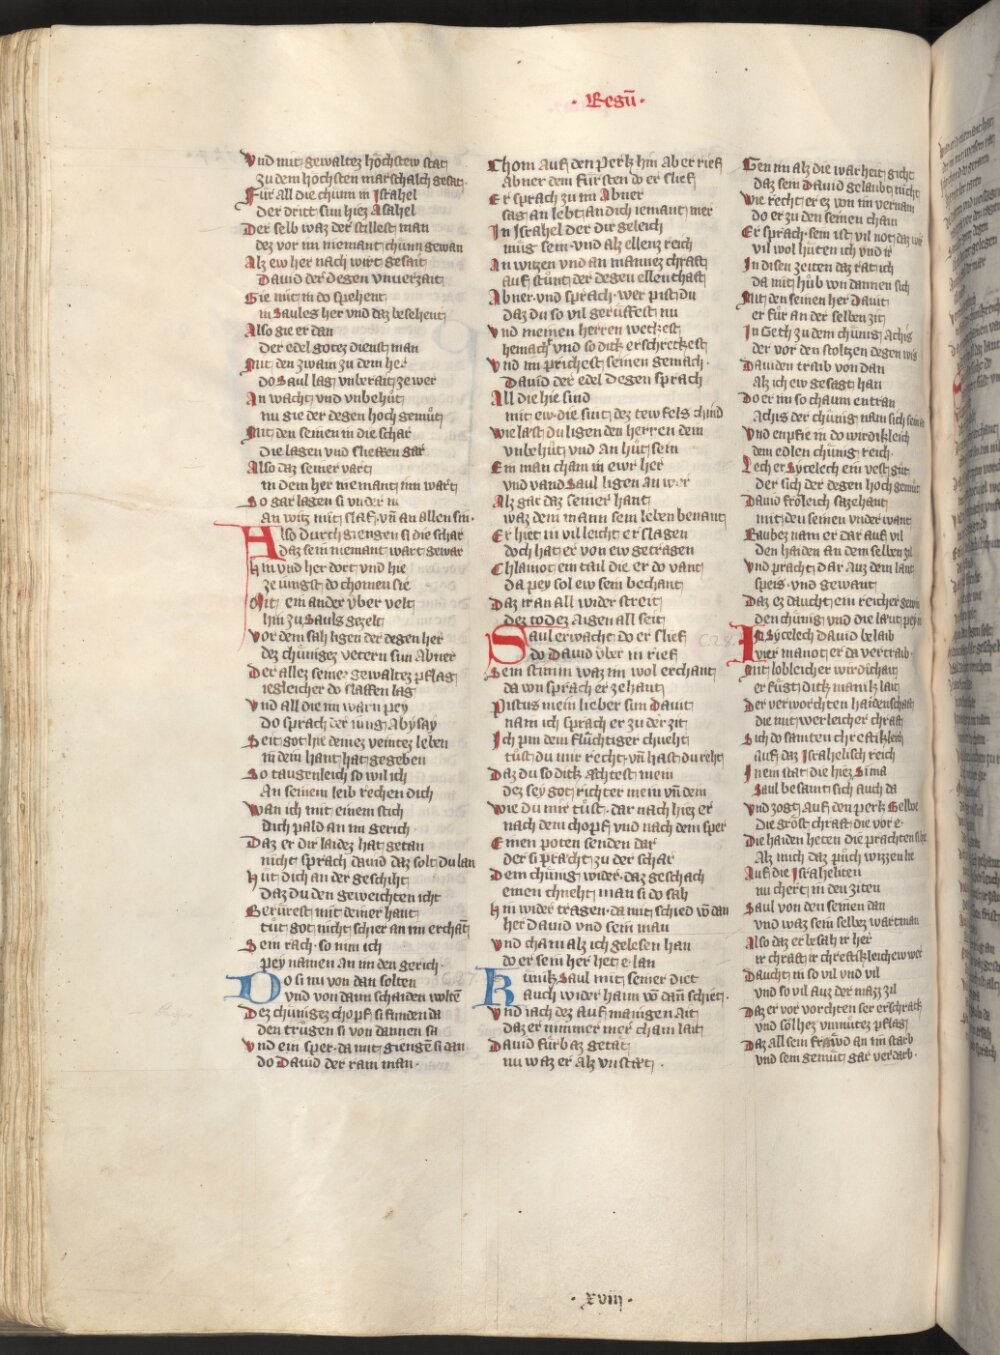 · Regū ·
Vnd mit gewaltez hochstew stat
Zu dem hochsten marschalch gesat
Fur all die chunn in Israhel
Der dritt sun hiez Asahel
Der selb waz der stillest man
dez vor im niemant chunn gewan
Alz ew her nach wirt gesait
Dauid der degen vnuerzait
Gie mit in do spehent
in Saules her vnd daz besehent
Also gie er dan
Der edel gotez dienst man
Mit den zwain zu dem her
do Saul lag vnberait ze wer
An wacht vnd vnbehůt
nu gie der degen hoch gemůt
Mit den seinen in die schar
die lagen vnd slieffen gar
Also daz seiner vart
in dem her niemant inn wart
So gar lagen si vnder in
an witz mit slaf · vñ an allen sin ·
Also durch giengen si die schar
daz sein niemant wart gewar
Hin vnd her dort vnd hie
ze iungst do chomen sie
Mit ein ander vber velt
hin zu Sauls gezelt
Vor dem sah ligen der degen her
dez chunigez vetern sun Abner
Der allez seines gewaltez pflag
iegleicher do slaffen lag
Vnd all die im warn pey
Do sprach der iung Abysay
Seit got hie deinez veintez leben
in dein hant hat gegeben
So taugenleich so wil ich
An seinem leib rechen dich
Wan ich mit einem stich
dich pald an im gerich
Daz er dir laidez hat getan
nicht sprach dauid daz solt du lan
Hůt dich an der geschiht
daz du den geweichten icht
Berůrest mit deiner hant
tůt got nicht schier an im erchāt
Sein rach · so nim ich
pey namen an im den gerich ·
Do si im von dan solten
vnd von dann schaiden woltē
Dez chunigez chopf si funden da
den trůgen si von dannen sa
Vnd ein sper · da mit giengē si dan
do Dauid der rain man ·
Chom auf den perk hin aber rief
Abner dem fursten do er slief
Er sprach zu im Abner
sag an lebt an dich iemant mer
In Israhel der dir geleich
můg sein · vnd alz ellenz reich
An witzen vnd an mannez chraft
auf stůnt der degen ellenthaft
Abner vnd sprach · wer pist du
daz du so vil gerůffest nu
Vnd meinen herren wekest
hernach vnd so dik erschrekest
Vnd im prichest seinen gemach ·
Dauid der edel degen sprach
All die hie sind
mit ew · die sint dez tewfels chind
Wie last du ligen den herren dein
vnbehůt vnd an hůt sein
Ein man cham in ewr her
vnd vand Saul ligen an wer
Alz gar daz seiner hant
waz dem mann sein leben benant
Er hiet in vil leicht erslagen
doch hat er von ew getragen
Chlainot ein tail die er do vant
da pey sol ew sein bechant
Daz ir an all wider streit
dez todez aigen all seit
Saul erwacht do er slief
do Dauid vber in rief
Sein stimm waz im wol erchant
da von sprach er zehant
Pistus mein lieber sun Dauit
nain ich sprach er zu der zit
Ich pin dein fluchtiger chneht
tůst du mir recht · vñ hast du reht
Daz du so dik æchtest mein
dez sey got richter mein vñ dein
Wie du mir tůst · dar nach hiez er
nach dem chopf vnd nach dem sper
Einen poten senden dar
der si pracht zu der schar
Dem chunig wider · daz geschach
einen chneht man si do sah
Hin wider tragen · da mit schied vō dan
her dauid vnd sein man
Vnd cham alz ich gelesen han
do er sein her het e lan
Kunik Saul mit seiner diet
auch wider haim vō dañ schiet ·
Vnd iach dez auf manigen ait
daz er nimmer mer cham lait
Dauid fůrbaz getæt
nu waz er alz vnstæt ·
Gen im alz die warheit giht
daz sein Dauid gelaubt nicht
Wie recht er ez von im vernam
do er zu den seinen cham
Er sprach · sein ist vil not daz wir
vil wol hůten ich vnd ir
In disen zeiten daz rat ich
da mit hůb von dannen sich
Mit den seinen her Dauit
er fůr an der selben zit
In Geth zu dem chunig Achis
der vor den stoltzen degen wis
Dauiden traib von dan
Alz ich ew gesagt han
Do er im so chaum entran
Achis der chunig nam sich
Vnd enpfie in do wirdikleich
dem edlen chunig reich ·
Sycelech ein vest gůt
der sich der degen hoch gemůt
Dauid frőleich sazehant
mit den seinen vnder want
Raubez nam er dar auf vil
den haiden an dem selben zil
Vnd pracht dar auz dem lant
speis · vnd gewant
Daz ez daucht ein reicher gewin
den chunig vnd die laut
In Sycelech dauid belaib
vier manot er da vertraib
Mit lobleicher wirdichait
er fůgt dik manik lait
Der verworchten haidenschaft
die mit werleicher chraft
Sich do samten chreftikleich
auf daz Israhelisch reich
In ein stat die hiez Sima
Saul besamt sich auch da
Vnd zogt auf den perk Gelboe
Die grőst chraft die vor e ·
Die haiden heten die prachten
Alz mich daz půch wizzen lie
Auf die Israheliten
nu chert in den ziten
Saul von den seinen dan
vnd waz sein selbez wartman
Also daz er besah ir her
ir chraft ir chreftikleichew wer
Daucht in so vil vnd vil
vnd so vil auz der mazz zil
Daz er vor vorchten ser erschrak
vnd solhez vnmůtez pflag
Daz all sein frawd an im starb
vnd sein gemůt gar verdarb ·
· xviij ·